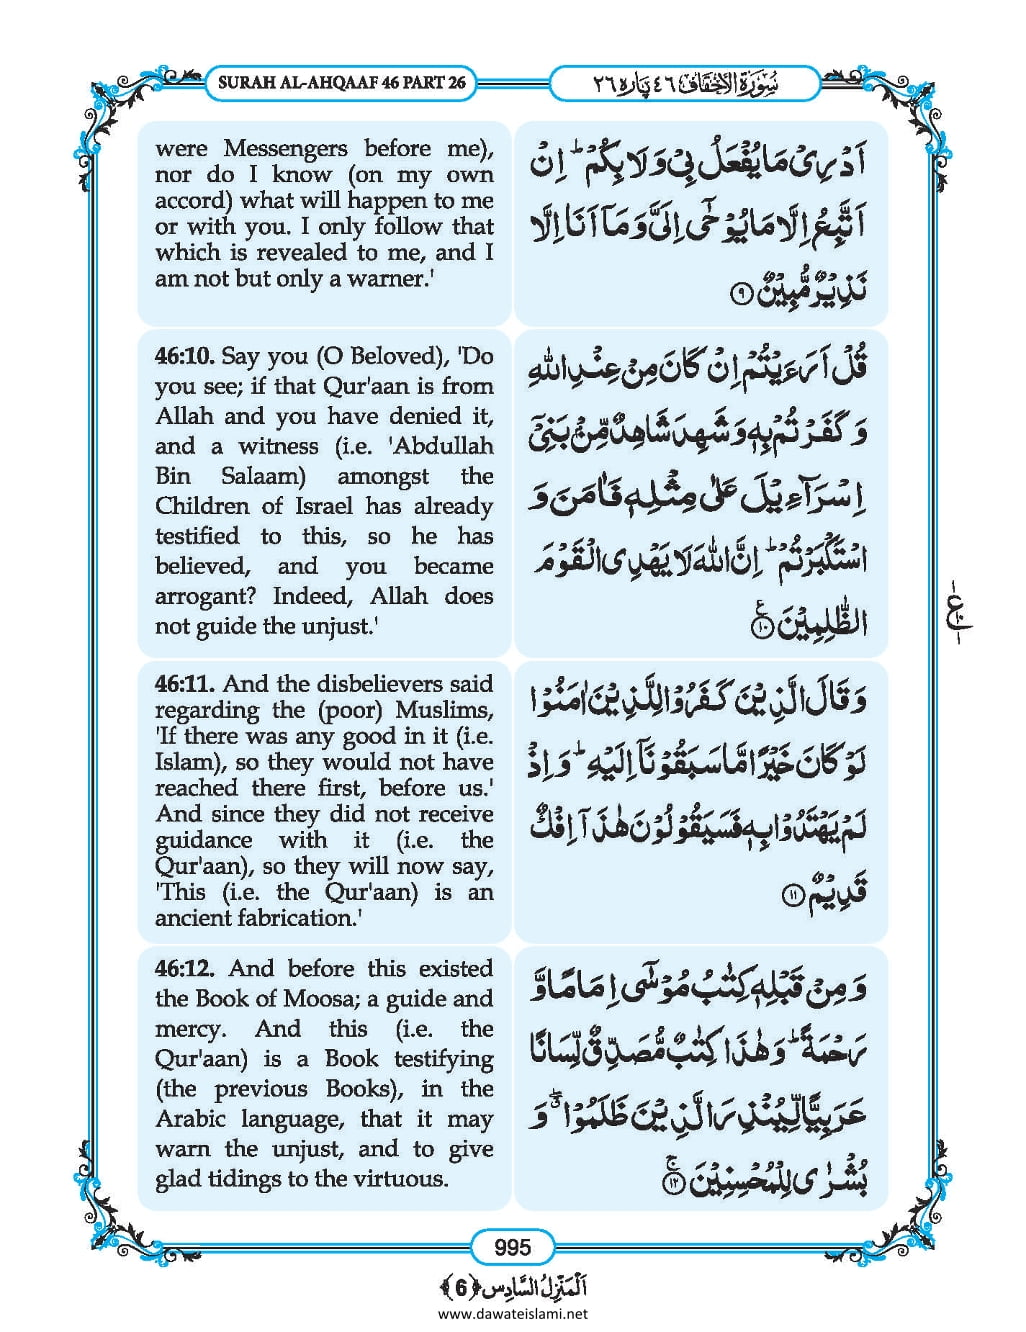 SURAH AL-AHQAAF 46 PART 26
سُوْرَةُ الْاَحْقَاف ٤٦ پاره ٢٦
were Messengers before me),
nor do I know (on my own
accord) what will happen to me
or with you. I only follow that
which is revealed to me, and I
am not but only a warner.'
اَدْرِیْ مَا یُفْعَلُ بِیْ وَ لَا بِكُمْؕ اِنْ
اَتَّبِعُ اِلَّا مَا یُوْحٰۤی اِلَیَّ وَ مَاۤ اَنَا اِلَّا
نَذِیْرٌ مُّبِیْنٌ ۹
46:10. Say you (O Beloved), 'Do
you see; if that Qur'aan is from
Allah and you have denied it,
and a witness (i.e. 'Abdullah
Bin Salaam) amongst the
Children of Israel has already
testified to this, so he has
believed, and you became
arrogant? Indeed, Allah does
not guide the unjust.'
قُلْ اَرَءَیْتُمْ اِنْ كَانَ مِنْ عِنْدِ اللّٰهِ
وَ كَفَرْتُمْ بِهٖ وَ شَهِدَ شَاهِدٌ مِّنْۢ بَنِیْۤ
اِسْرَآءِیْلَ عَلٰی مِثْلِهٖ فَاٰمَنَ وَ
اسْتَكْبَرْتُمْؕ اِنَّ اللّٰهَ لَا یَهْدِی الْقَوْمَ
الظّٰلِمِیْنَ ۱۰ ع
46:11. And the disbelievers said
regarding the (poor) Muslims,
'If there was any good in it (i.e.
Islam), so they would not have
reached there first, before us.'
And since they did not receive
guidance with it (i.e. the
Qur'aan), so they will now say,
'This (i.e. the Qur'aan) is an
ancient fabrication.'
وَ قَالَ الَّذِیْنَ كَفَرُوْا لِلَّذِیْنَ اٰمَنُوْا
لَوْ كَانَ خَیْرًا مَّا سَبَقُوْنَاۤ اِلَیْهِؕ وَ اِذْ
لَمْ یَهْتَدُوْا بِهٖ فَسَیَقُوْلُوْنَ هٰذَاۤ اِفْكٌ
قَدِیْمٌ ۱۱
46:12. And before this existed
the Book of Moosa; a guide and
mercy. And this (i.e. the
Qur'aan) is a Book testifying
(the previous Books), in the
Arabic language, that it may
warn the unjust, and to give
glad tidings to the virtuous.
وَ مِنْ قَبْلِهٖ كِتٰبُ مُوْسٰۤی اِمَامًا وَّ
رَحْمَةًؕ وَ هٰذَا كِتٰبٌ مُّصَدِّقٌ لِّسَانًا
عَرَبِیًّا لِّیُنْذِرَ الَّذِیْنَ ظَلَمُوْا ۖۗ وَ
بُشْرٰی لِلْمُحْسِنِیْنَۚ ۱۲
995
اَلْمَنْزِلُ السَّادِس ﴿6﴾
www.dawateislami.net